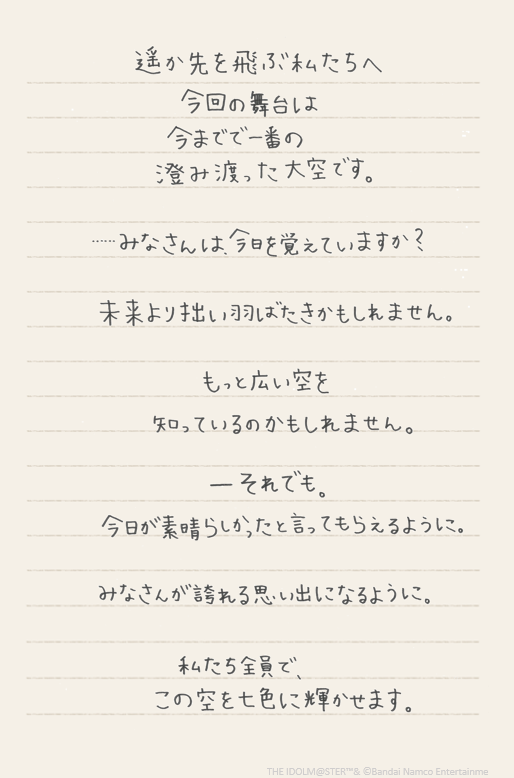 遥か先を飛ぶ私たちへ
今回の舞台は
今までで一番の
澄み渡った大空です。
……みなさんは、今日を覚えていますか？
未来より拙い羽ばたきかもしれません。
もっと広い空を
知っているのかもしれません。
― それでも。
今日が素晴らしかったと言ってもらえるように。
みなさんが誇れる思い出になるように。
私たち全員で、
この空を七色に輝かせます。
THE IDOLM@STER™& ©Bandai Namco Entertainme